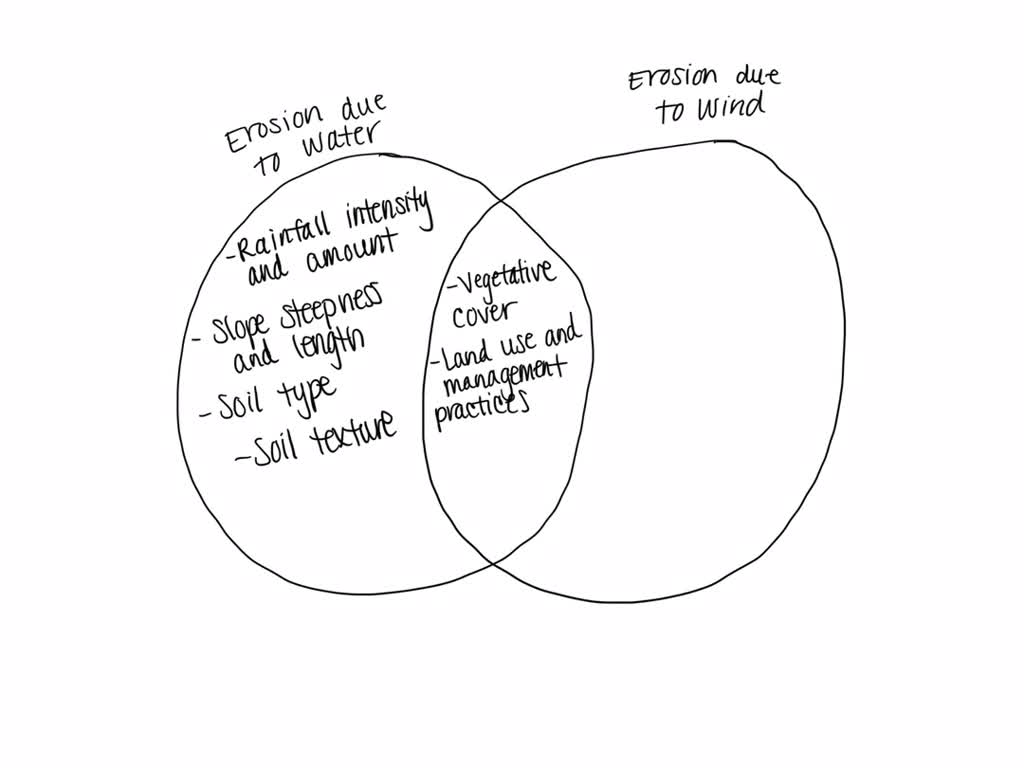 Erosion due
to water
Erosion due
to wind
- Rainfall intensity
and amount
- Slope steepness
and length
- Soil type
- Soil texture
- Vegetative
cover
- Land use and
management
practices